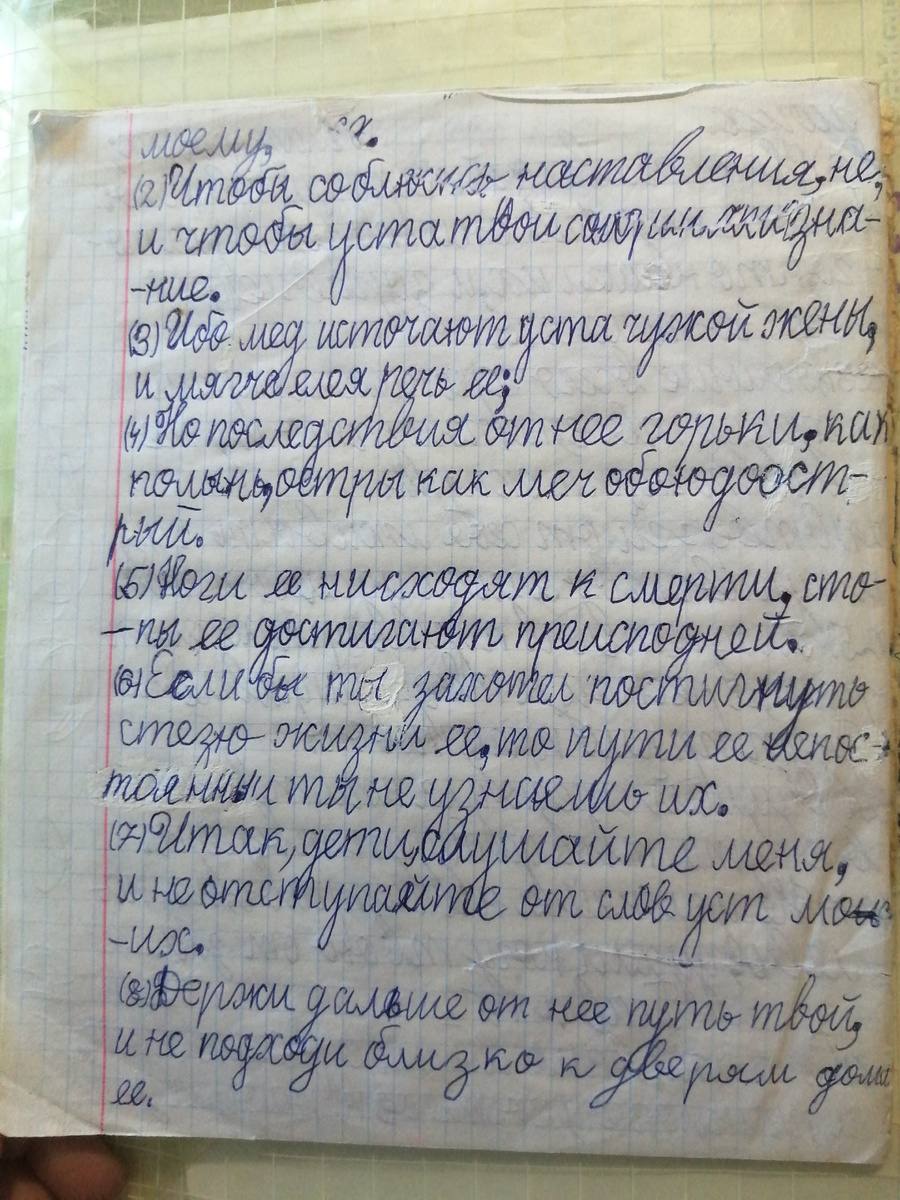 моему,
(2) Чтобы соблюсти наставления, не,
и чтобы уста твои сохранили зна-
-ние.
(3) Ибо мед источают уста чужой жены,
и мягче елея речь ее;
(4) Но последствия от нее горьки, как
полынь, остры как меч обоюдоост-
рый.
(5) Ноги ее нисходят к смерти, сто-
-пы ее достигают преисподней.
(6) Если бы ты захотел постигнуть
стезю жизни ее, то пути ее непос-
тоянны и ты не узнаешь их.
(7) Итак, дети, слушайте меня,
и не отступайте от слов уст мо
-их.
(8) Держи дальше от нее путь твой,
и не подходи близко к дверям дома
ее.